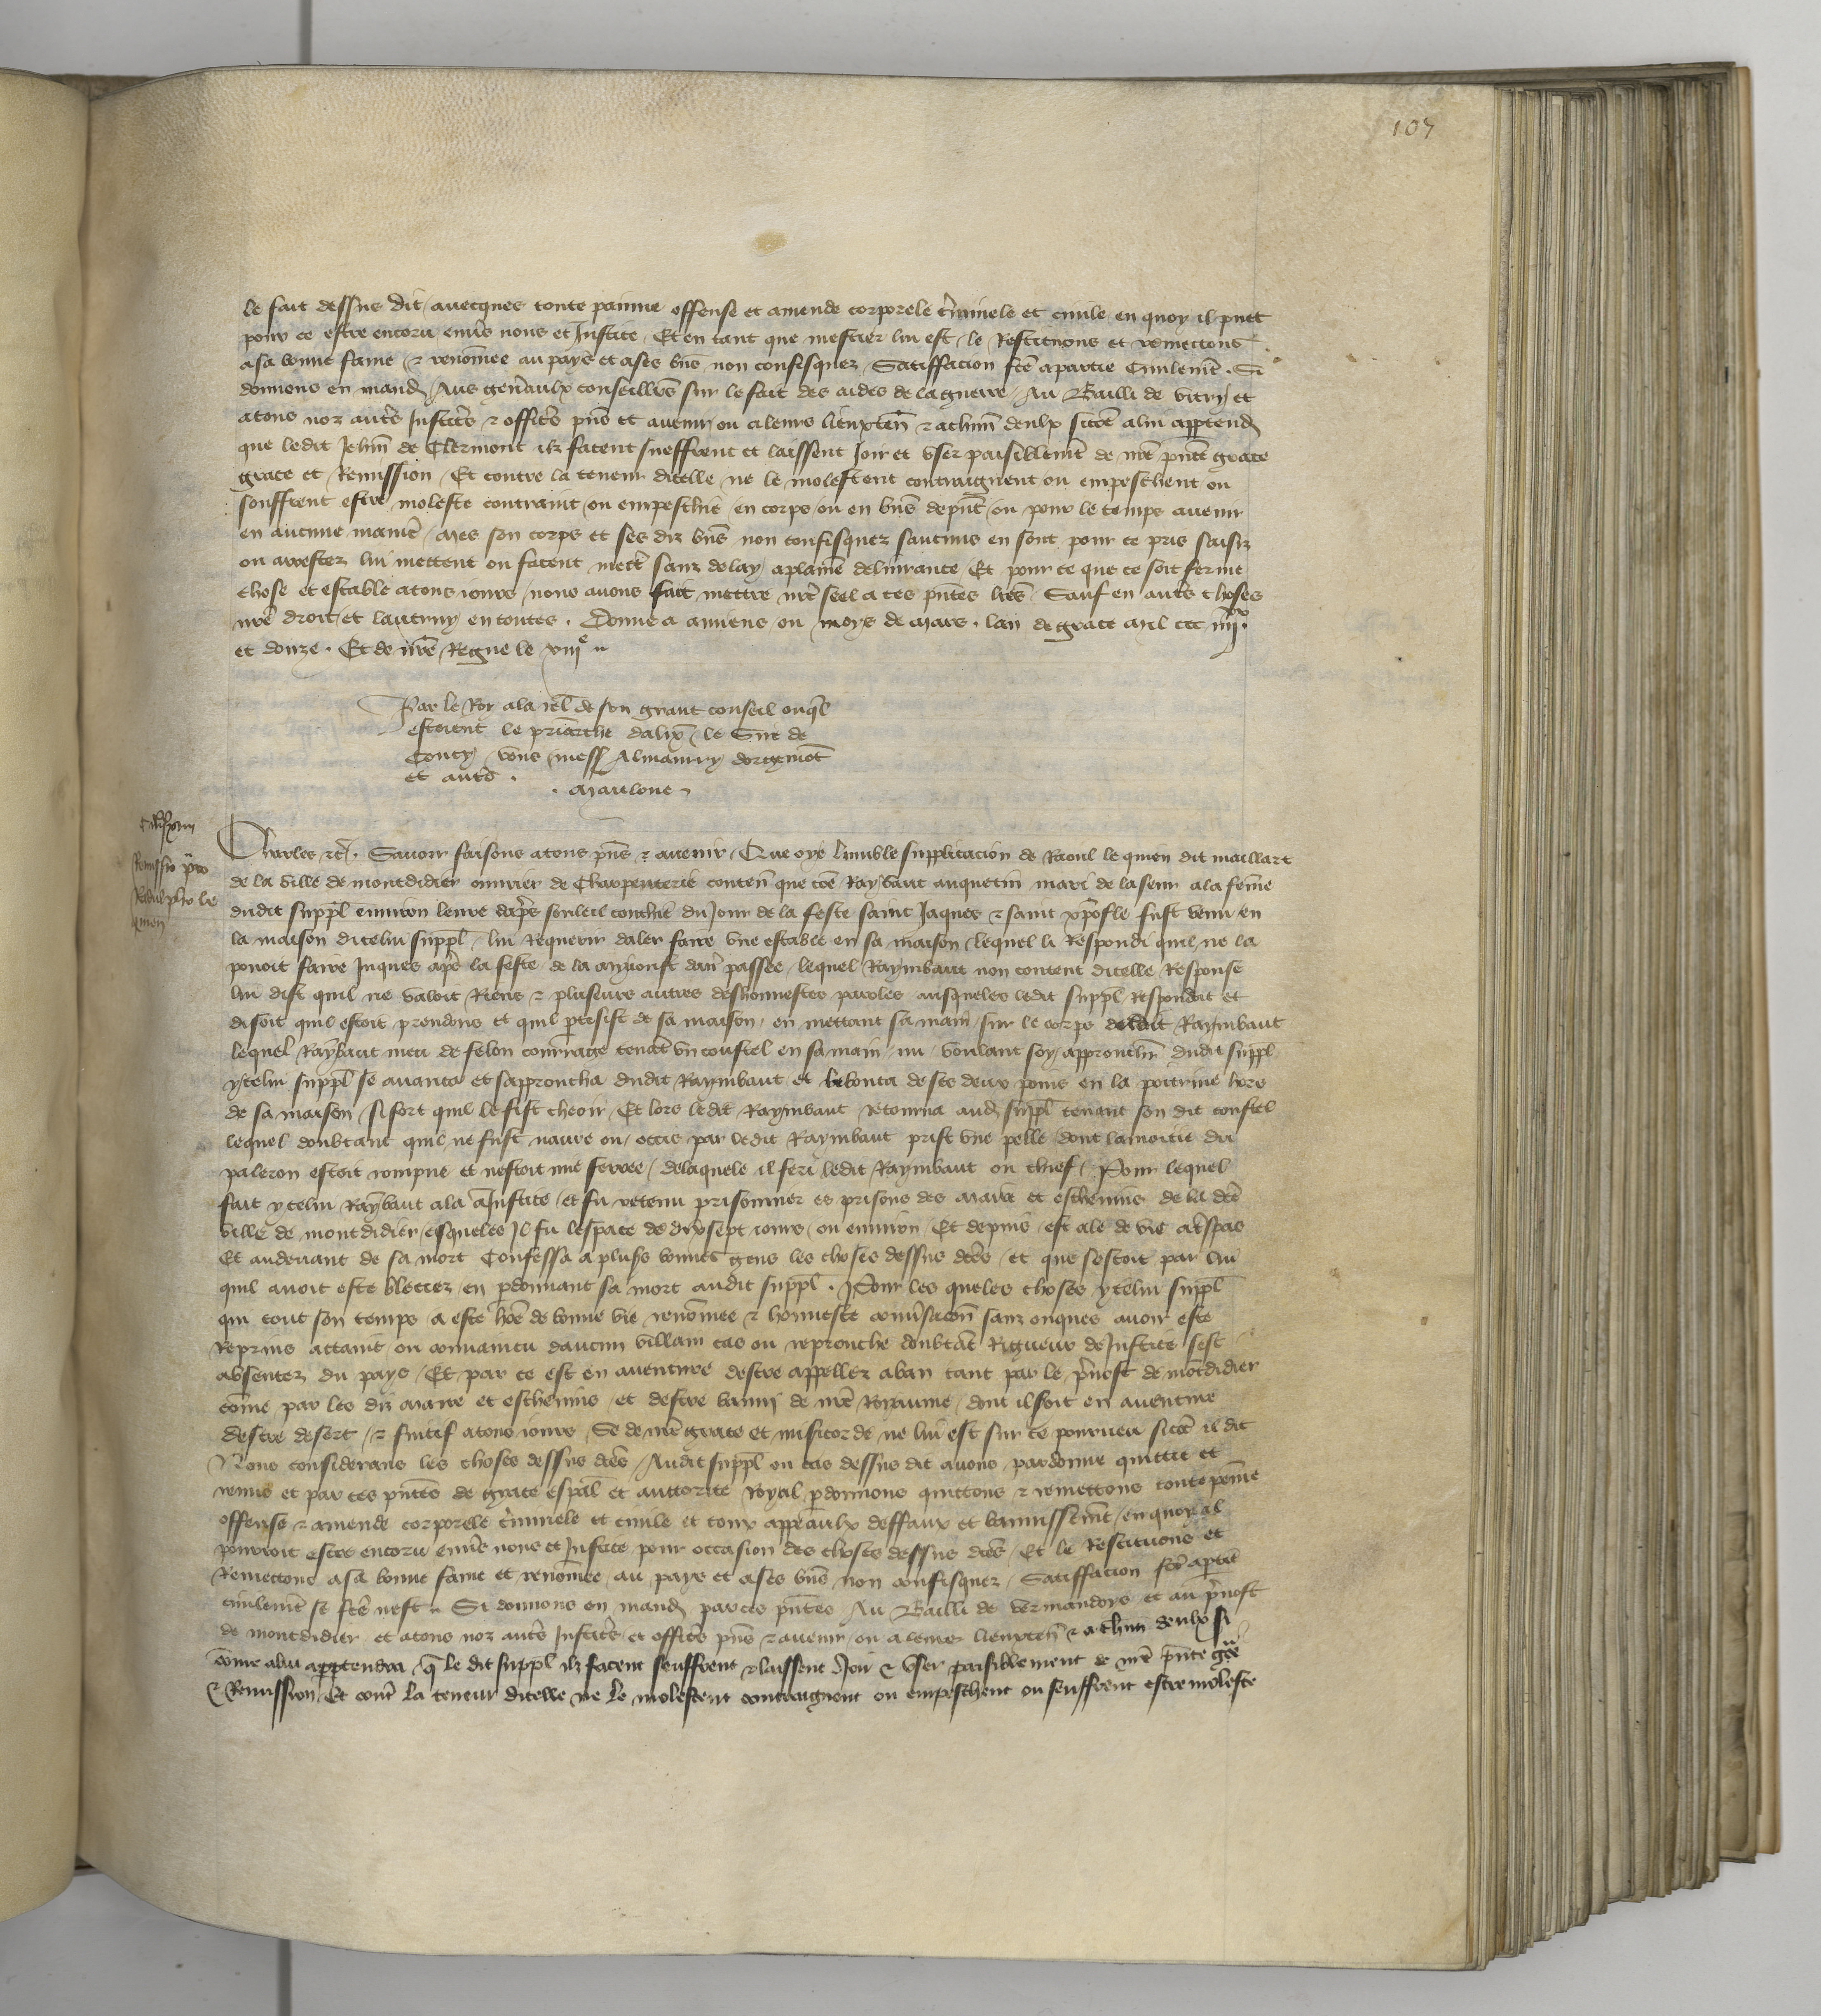 107
le fait dessus dit avecques toute painne offense et amende corporele criminele et civile en quoy il puet
pour ce estre encoru envers nous et Justice Et en tant que mestier lui est le Restituons et remectons
a sa bonne fame et renommee au pays et a ses biens non confisquez Satisfacion fcte a partie Civilement . Si
donnons en mand Aus generaulx conseilliers sur le fait des aides de la guerre Au Bailli de Vitry et
a tous noz autres Justiciers et officiers presens et avenir ou a leurs lieuxten et a chascun deulx sicomme a lui appartend
que ledit Jehan de Clermont ilz facent sueffrent et laissent Joir et user paisiblement de nostre presente grace
grace et Remission Et contre la teneur dicelle ne le molestent contraignent ou empeschent ou
souffrent estre moleste contraint ou empeschie en corps ou en biens depnt ou pour le temps avenir
en aucune maniere Mes son corps et ses diz biens non confisquez saucuns en sont pour ce pris saisiz
ou arrestez lui mettent ou facent mectre sanz delay a plaine delivrance Et pour ce que ce soit ferme
chose et estable a tous jours nous avons fait mettre nostre seel a ces presentes lettres Sauf en autres choses
nostre droit et lautruy en toutes . Donne a amiens ou moys de Mars . lan de grace mil ccc iiii xx
et douze . Et de nostre Regne le xiii e
Par le Roy a la rel de son grant conseil ouquel
estoient le patriarche dalix le Sire de
Coucy vous mess Almaury dorgemont
et autres .
. Maulone
Remissio pro
Radulpho le
quien
Charles etc . Savoir faisons a tous presens et avenir Que oye lumble supplicacion de Raoul le quien dit maillart
de la ville de montdidier ouvrier de Charpenterie conten que come Raymbaut anquetin mari de la seur a la femme
dudit suppl environ leure dapres souleil couchie du Jour de la feste saint Jaques et saint xpofle fust venu en
la maison dicelui suppl lui Requerir daler faire une estable en sa maison lequel li Respondi quil ne la
pouoit faire Juques apres la feste de la myaoust dan passee lequel Raymbaut non content dicelle Response
lui dist quil ne valoit Riens et plusieurs autres deshonnestes paroles ausqueles ledit suppl respondoit et
disoit quil estoit preudons et quil partesist de sa maison en mettant sa main sur le corps dudit Raymbaut
lequel Raymbaut meu de felon courrage tenant un coustel en sa main nu voulant soy approuchier dudit suppl
ycelui suppl se avanca et saprroucha dudit Raymbaut et le bouta de ses deux poins en la poitrine hors
de sa maison si fort quil le fist cheoir Et lors ledit Raymbaut retourna aud suppl tenant son dit coustel
lequel doubtant quil ne fust navre ou occis par ledit Raymbaut prist une pelle dont la moitie du
paleron estoit rompue et nestoit mie ferree de laquele il feri ledit Raymbaut ou chief Pour lequel
fait ycelui Raymbaut ala a Justice et fu retenu prisonnier es prisons des Maire et eschevins de la dicte
ville de montdidier esqueles Il fu lespace de dixsept jours ou environ Et depuis est ale de vie a trespas
Et audevant de sa mort Confessa a pluss bonnes gens les choses dessus dictes et que cestoit par lui
quil avoit este bleciez en pardonnant sa mort audit suppl . Pour les queles choses ycelui suppl
qui tout son temps a este home de bonne vie renommee et honneste conversacion sanz onques avoir este
Reprins attaint ou convaincu daucun villain cas ou reprouche doubtant Rigueur de Justice sest
absentez du pays Et par ce est en aventure destre appellez a ban tant par le prevost de montdidier
come par les diz Maire et eschevins et destre banni de nostre Royaume dont il soit en aventure
destre desert et fuitif a tous jours Se de nostre grace et misericorde ne lui est sur ce pourveu sicomme il dit
Nous considerans les choses dessus dictes Audit suppl ou cas dessus dit avons pardonne quittie et
remis et par ces presentes de grace especial et auctorite royal pardonnons quittons et remettons toute peine
offense et amende corporele criminele et civile et tous appeaulx deffaux et bannissement en quoy il
pourroit estre encoru envers nous et Justice pour occasion des choses dessus dictes Et le Restituons et
Remettons a sa bonne fame et renommee au pays et a ses biens non confisquez Satisfacion fcte a partie
civilement se fcte nest Si donnons en mand par ces presentes Au Bailli de Vermandoys et au prevost
de montdidier et a tous noz autres Justiciers et officiers presens et avenir ou a leurs lieuxten et a chascun deulx si
comme a lui appartendra que le dit suppl ilz facent seuffrent et laissent Joir et user paisiblement de nostre presente grace
et Remission Et contre la teneur dicelle ne le molestent contraignent ou empeschent ou seuffrent estre moleste